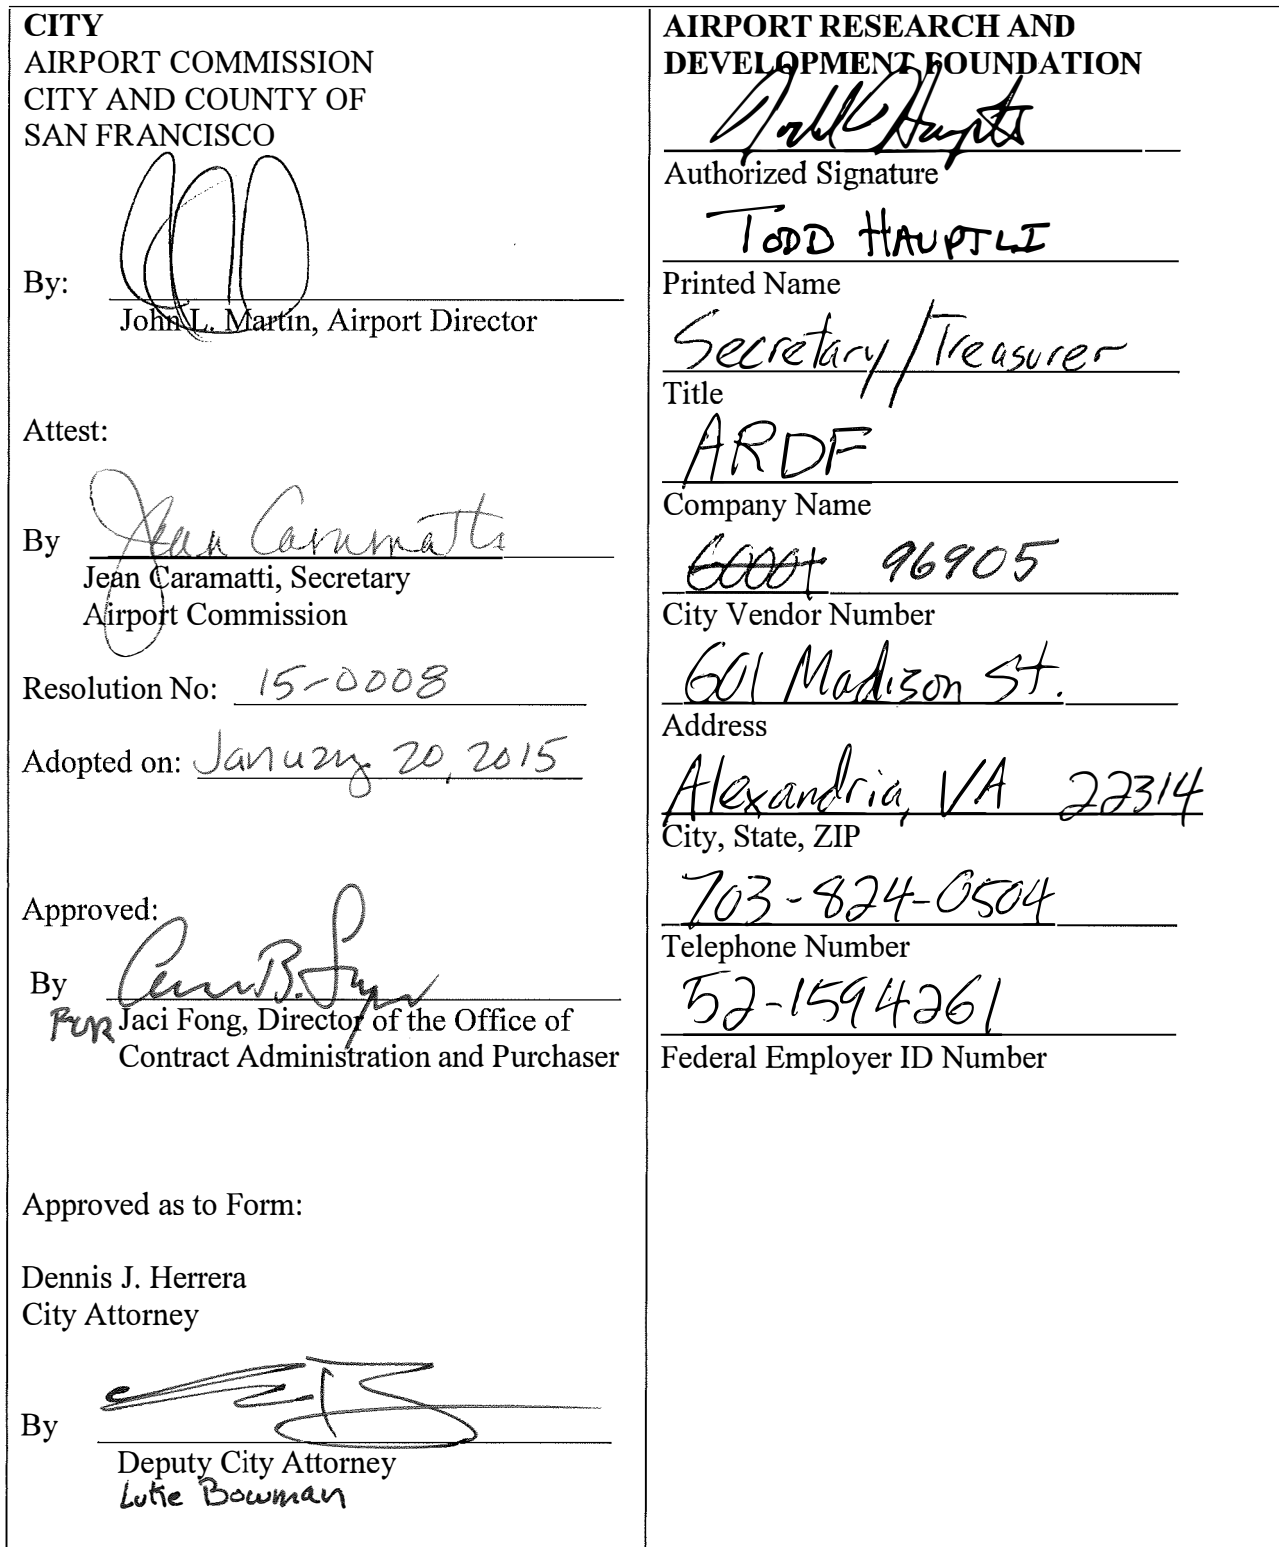 CITY
AIRPORT COMMISSION
CITY AND COUNTY OF
SAN FRANCISCO
By:
John L. Martin, Airport Director
Attest:
By Jean Caramatti
Jean Caramatti, Secretary
Airport Commission
Resolution No: 15-0008
Adopted on: January 20, 2015
Approved:
By
FOR Jaci Fong, Director of the Office of
Contract Administration and Purchaser
Approved as to Form:
Dennis J. Herrera
City Attorney
By
Deputy City Attorney
Luke Bowman
AIRPORT RESEARCH AND
DEVELOPMENT FOUNDATION
Authorized Signature
TODD HAUPTLI
Printed Name
Secretary/Treasurer
Title
ARDF
Company Name
96905
City Vendor Number
601 Madison St.
Address
Alexandria, VA 22314
City, State, ZIP
703-824-0504
Telephone Number
52-1594261
Federal Employer ID Number